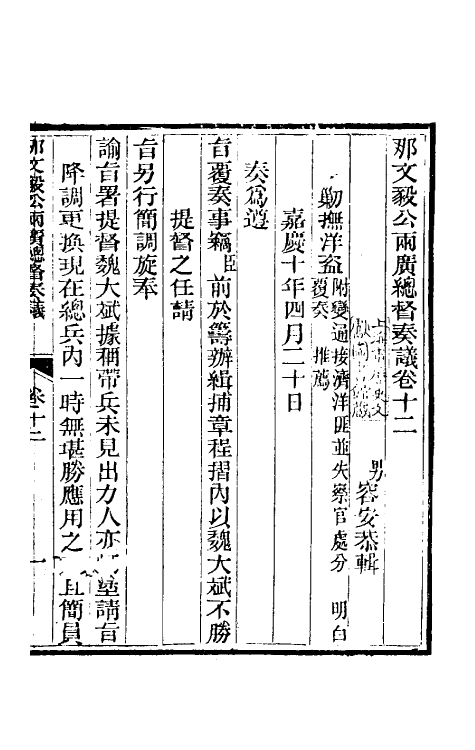 那文毅公兩廣總督奏議卷十二
男 容安恭輯
勦撫洋盜 附變通接濟洋匪並失察官處分 明白
覆奏 推薦
嘉慶十年四月二十日
奏爲遵
旨覆奏事竊臣前於籌辦緝捕章程摺內以魏大斌不勝
提督之任請
旨另行簡調旋奉
諭旨署提督魏大斌據稱帶兵未見出力人亦 請旨
降調更換現在總兵內一時無堪勝應用之 且簡員
那文毅公兩廣總督奏議 卷十二 一